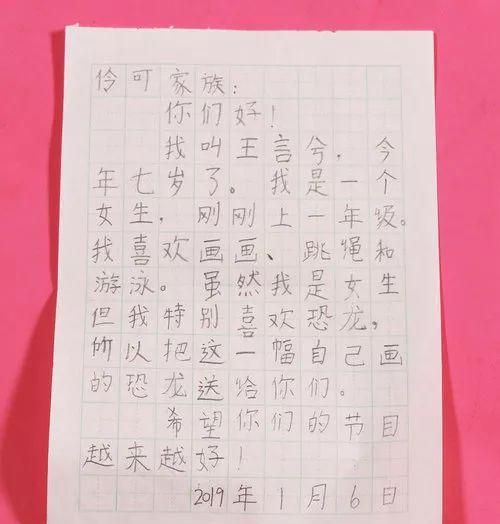 伶可家族：
你们好！
我叫王言兮，今
年七岁了。我是一个
女生，刚刚上一年级。
我喜欢画画、跳绳和
游泳。虽然我是女生
但我特别喜欢恐龙，
所以把这一幅自己画
的恐龙送给你们。
希望你们的节目
越来越好！
2019年1月6日